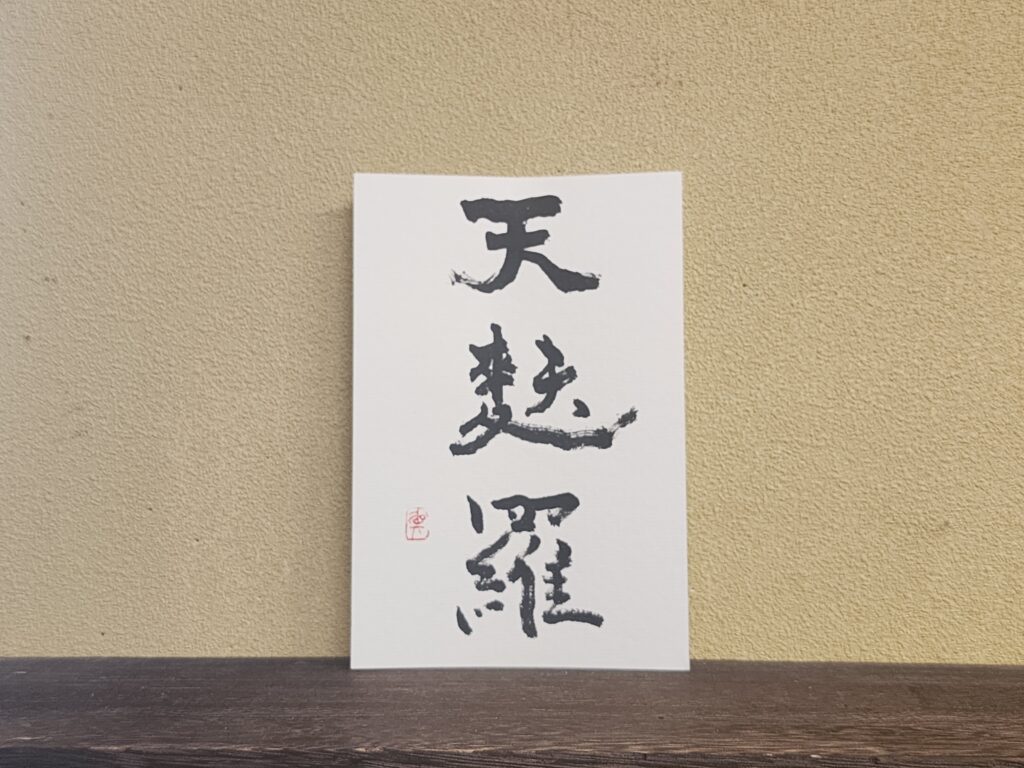 天麩羅